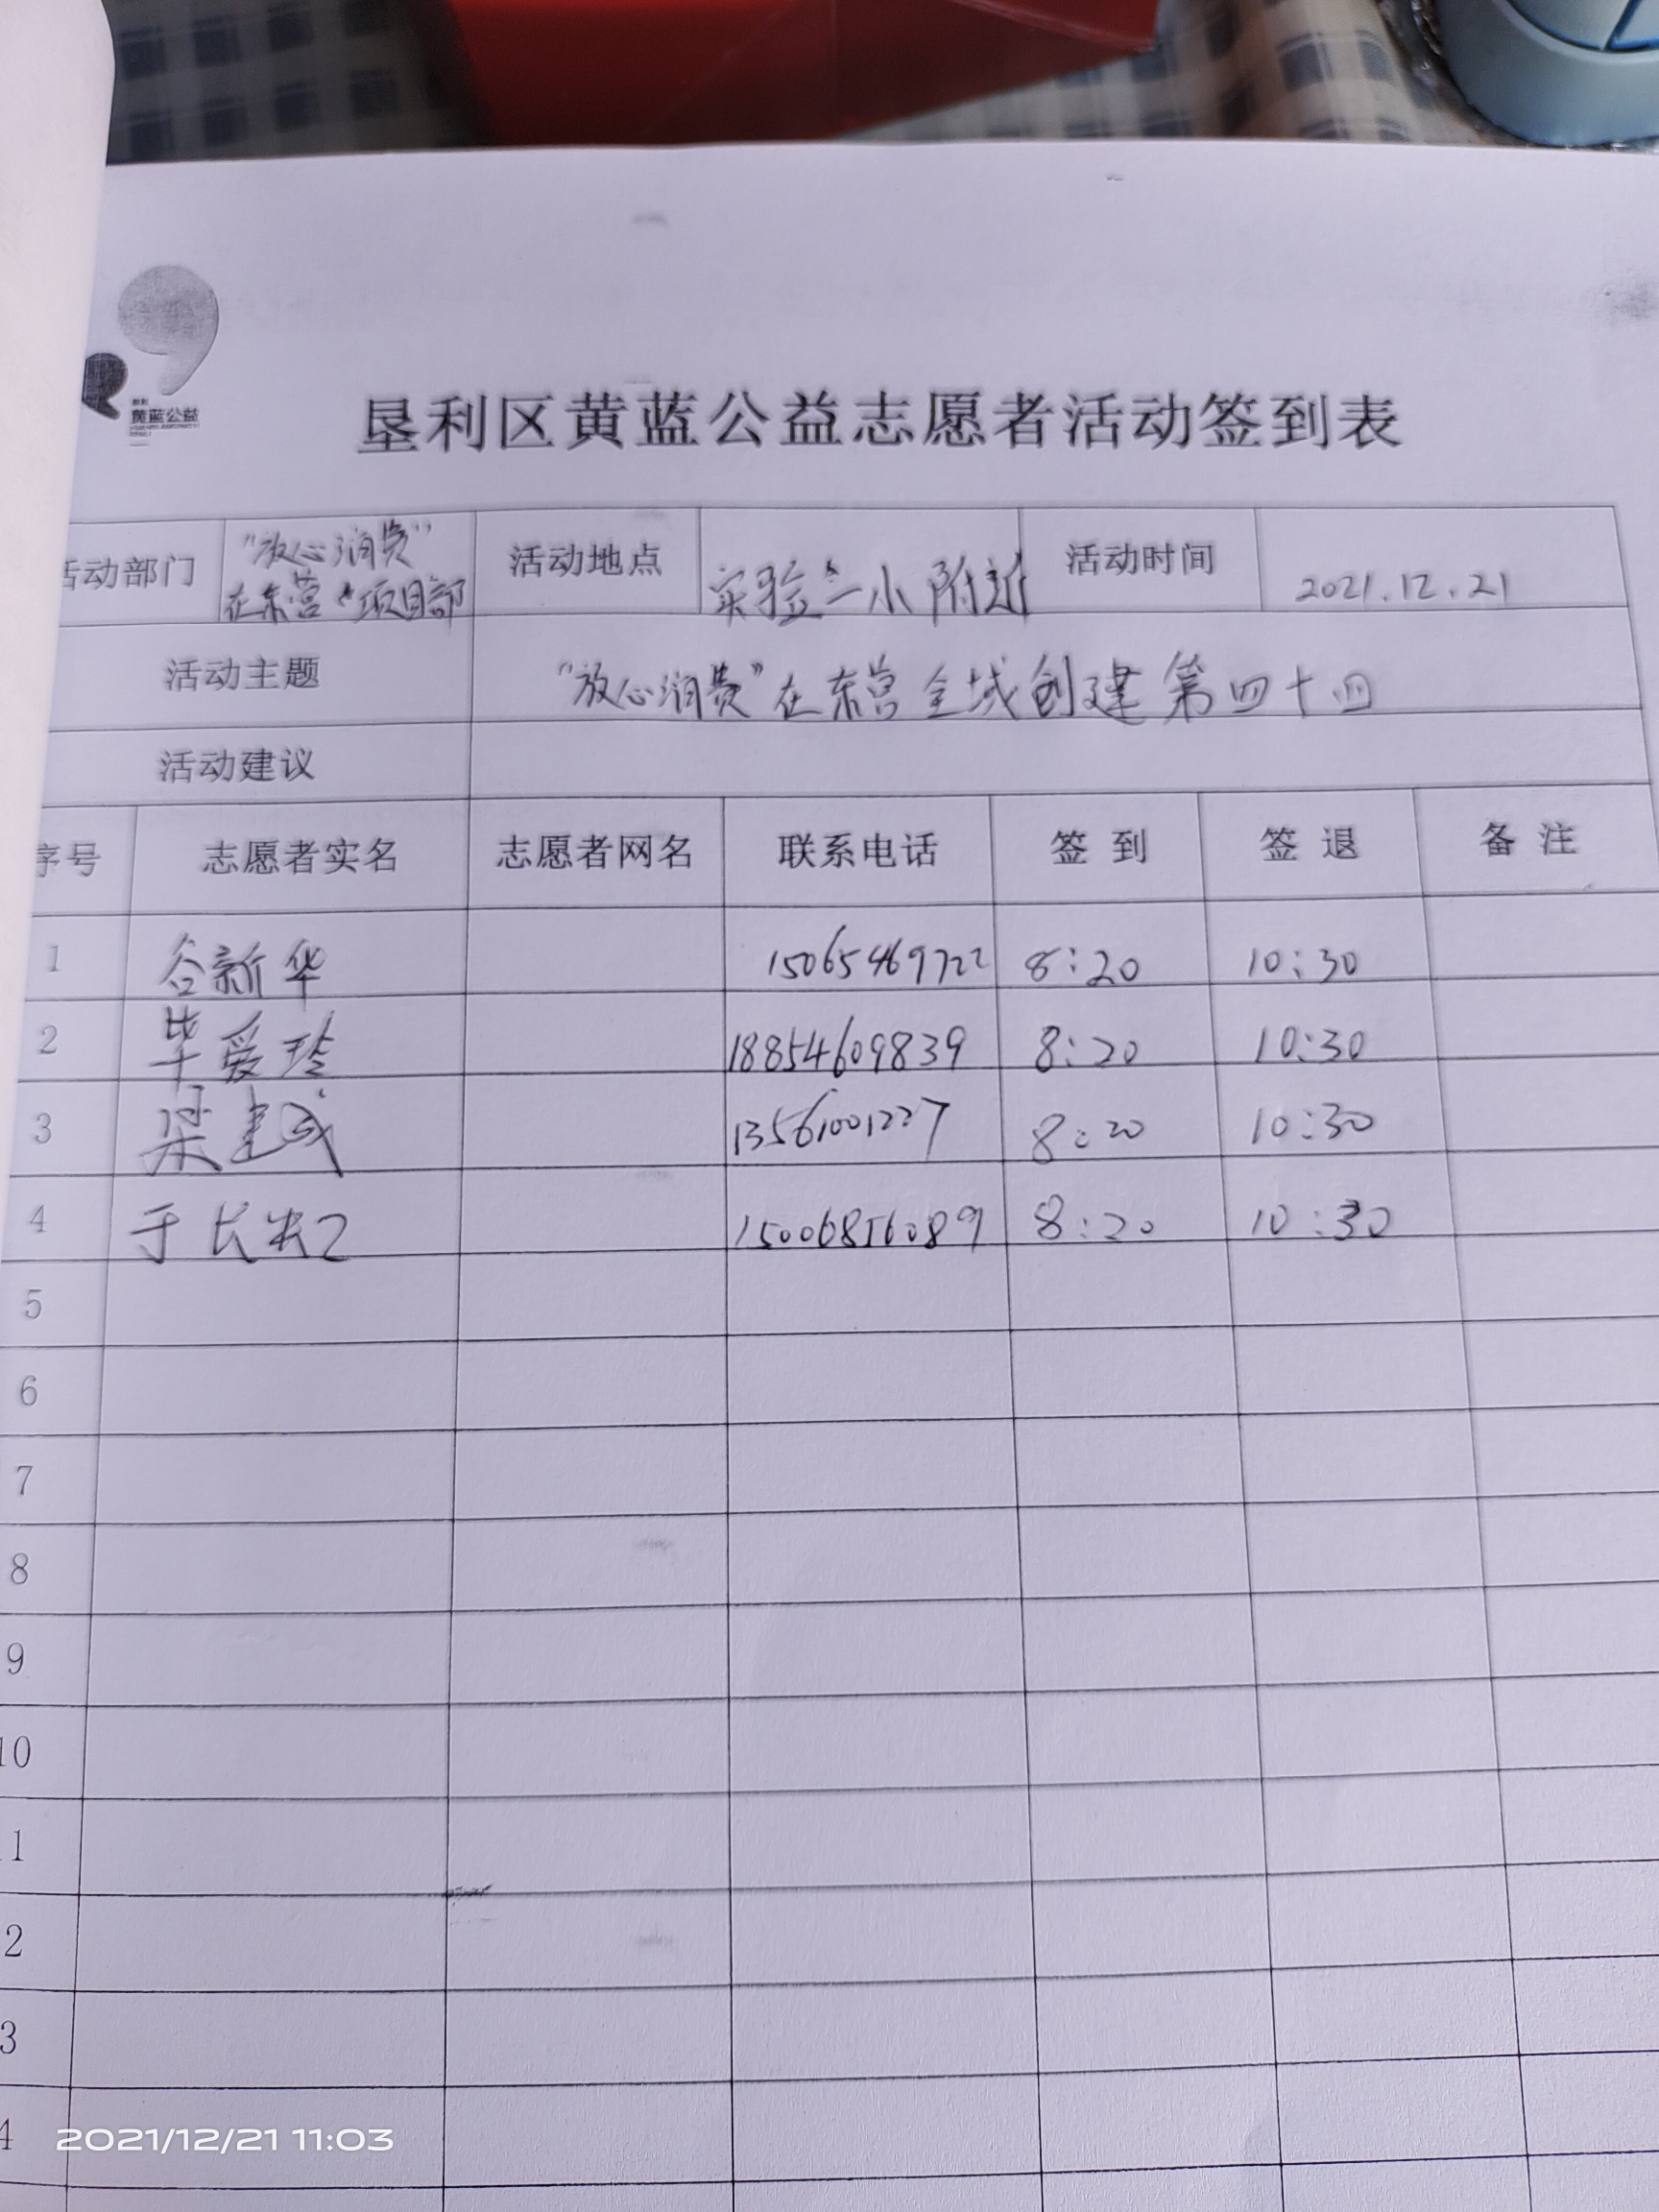 黄蓝公益
垦利区黄蓝公益志愿者活动签到表
活动部门 "放心消费"在东营项目部 活动地点 实验二小附近 活动时间 2021.12.21
活动主题 "放心消费"在东营全域创建第四十四
活动建议
序号 志愿者实名 志愿者网名 联系电话 签到 签退 备注
1 谷新华 15065469722 8:20 10:30
2 毕爱玲 18854609839 8:20 10:30
3 梁建成 13561001227 8:20 10:30
4 于长 15006856089 8:20 10:30
5
6
7
8
9
10
1
2
3
4
2021/12/21 11:03